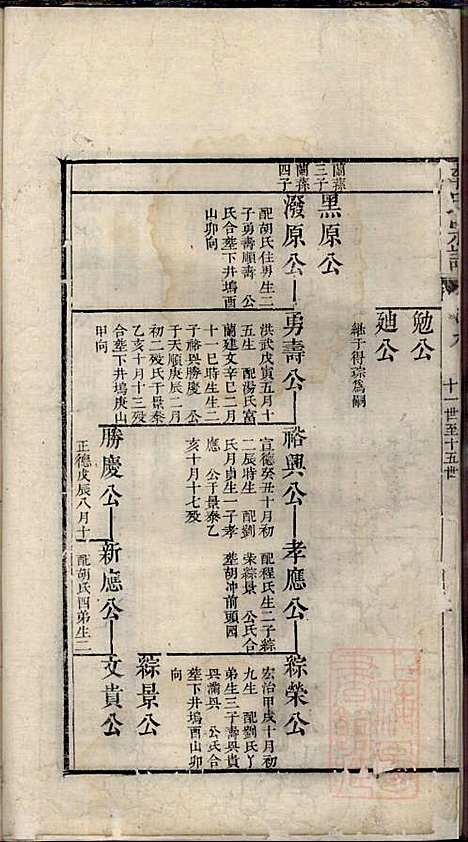 十一世至十五世
勉公
廸公
繼子得琮為嗣
蘭蓀
三子
黑原公
蘭蓀
四子
潑原公
配胡氏住男生二
子勇壽順壽 公
氏合塟下井塢酉
山卯向
勇壽公
洪武戊寅五月十
五生 配湯氏富
蘭建文辛巳二月
十一巳時生生二
子裕興勝慶 公
于天順庚辰二月
初二歿氏于景泰
乙亥十月十三歿
合塟下井塢庚山
甲向
裕興公
宣德癸丑十月初
二辰時生 配劉
氏月貞生一子孝
應 公于景泰乙
亥十月十七歿
孝應公
配程氏生二子綜
荣綜景 公氏合
塟胡冲前頭園
綜榮公
宏治甲戌十月初
九生 配劉氏丫
弟生三子壽與貴
與滿與 公氏合
塟下井塢酉山卯
向
綜景公
勝慶公
正德戊辰八月十
新應公
配胡氏四弟生二
文貴公